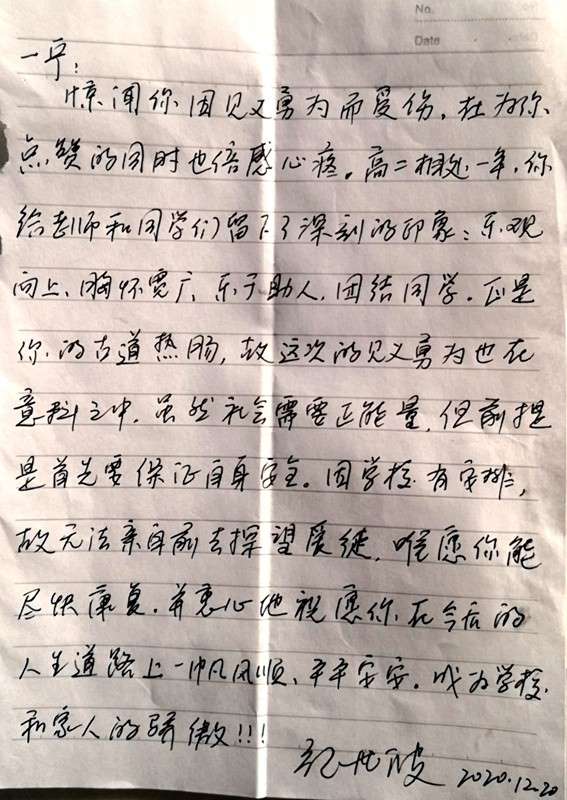 No.
Date
一宁：
惊闻你因见义勇为而受伤，在为你
点赞的同时也倍感心疼。高二相处一年，你
给老师和同学们留下了深刻的印象：乐观
向上、胸怀宽广、乐于助人、团结同学。正是
你的古道热肠，故这次的见义勇为也在
意料之中。虽然社会需要正能量，但前提
是首先要保证自身安全。因学校有安排，
故无法亲自前去探望爱徒，唯愿你能
尽快康复。并衷心地祝愿你在今后的
人生道路上一帆风顺、平平安安。成为学校
和家人的骄傲!!!
2020.12.20